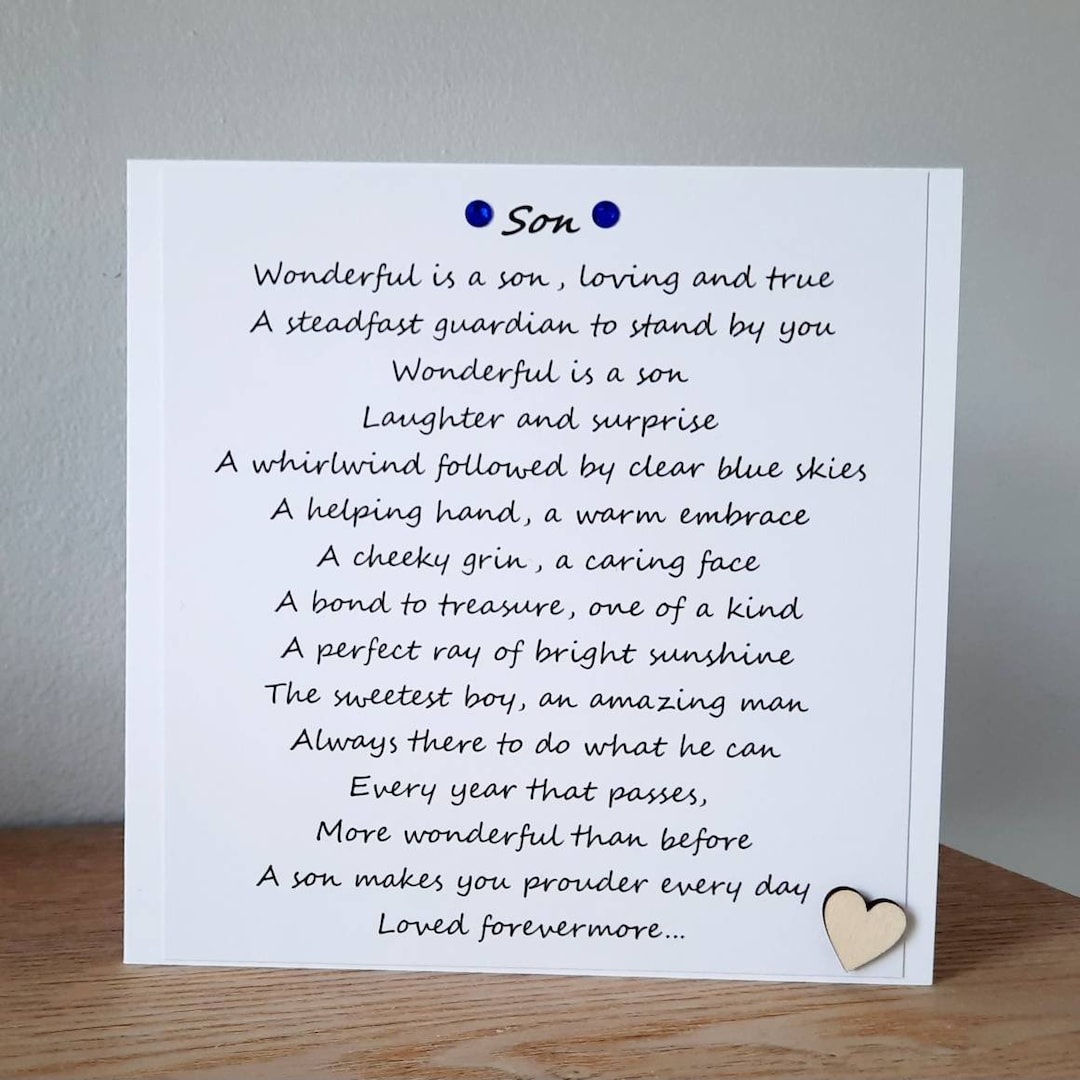 Son
Wonderful is a son, loving and true
A steadfast guardian to stand by you
Wonderful is a son
Laughter and surprise
A whirlwind followed by clear blue skies
A helping hand, a warm embrace
A cheeky grin, a caring face
A bond to treasure, one of a kind
A perfect ray of bright sunshine
The sweetest boy, an amazing man
Always there to do what he can
Every year that passes,
More wonderful than before
A son makes you prouder every day
Loved forevermore...